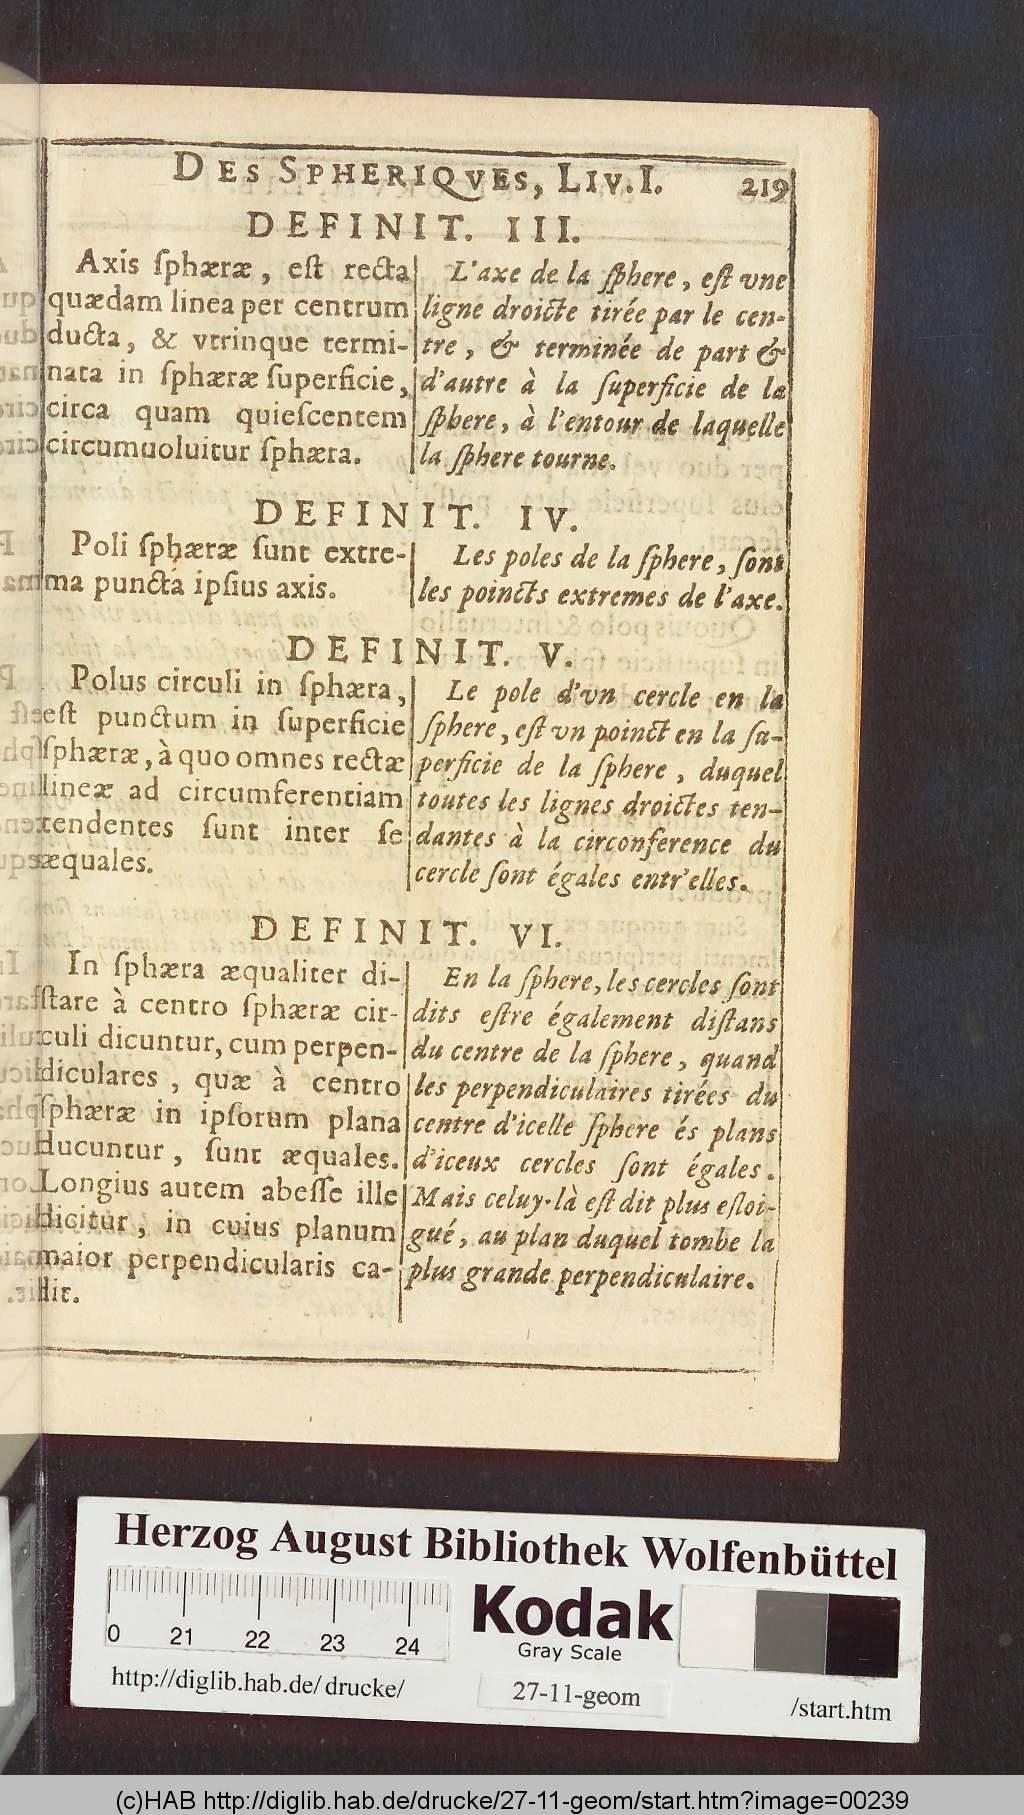 DES SPHERIQVES, LIV. I. 219
DEFINIT. III.
Axis ſphæræ, eſt recta
quædam linea per centrum
ducta, & vtrinque termi-
nata in ſphæræ ſuperficie,
circa quam quieſcentem
circumuoluitur ſphæra.
L'axe de la ſphere, eſt vne
ligne droicte tirée par le cen-
tre, & terminée de part &
d'autre à la ſuperficie de la
ſphere, à l'entour de laquelle
la ſphere tourne.
DEFINIT. IV.
Poli ſphæræ ſunt extre-
ma puncta ipſius axis.
Les poles de la ſphere, ſont
les poincts extremes de l'axe.
DEFINIT. V.
Polus circuli in ſphæra,
eſt punctum in ſuperficie
ſphæræ, à quo omnes rectæ
lineæ ad circumferentiam
tendentes ſunt inter ſe
æquales.
Le pole d'vn cercle en la
ſphere, eſt vn poinct en la ſu-
perficie de la ſphere, duquel
toutes les lignes droictes ten-
dantes à la circonference du
cercle ſont égales entr'elles.
DEFINIT. VI.
In ſphæra æqualiter di-
ſtare à centro ſphæræ cir-
culi dicuntur, cum perpen-
diculares, quæ à centro
ſphæræ in ipſorum plana
ducuntur, ſunt æquales.
Longius autem abeſſe ille
dicitur, in cuius planum
maior perpendicularis ca-
dit.
En la ſphere, les cercles ſont
dits eſtre également diſtans
du centre de la ſphere, quand
les perpendiculaires tirées du
centre d'icelle ſphere és plans
d'iceux cercles ſont égales.
Mais celuy-là eſt dit plus eſloi-
gué, au plan duquel tombe la
plus grande perpendiculaire.
Herzog August Bibliothek Wolfenbüttel
0 21 22 23 24
Kodak
Gray Scale
http://diglib.hab.de/drucke/
27-11-geom
/start.htm
(c)HAB http://diglib.hab.de/drucke/27-11-geom/start.htm?image=00239